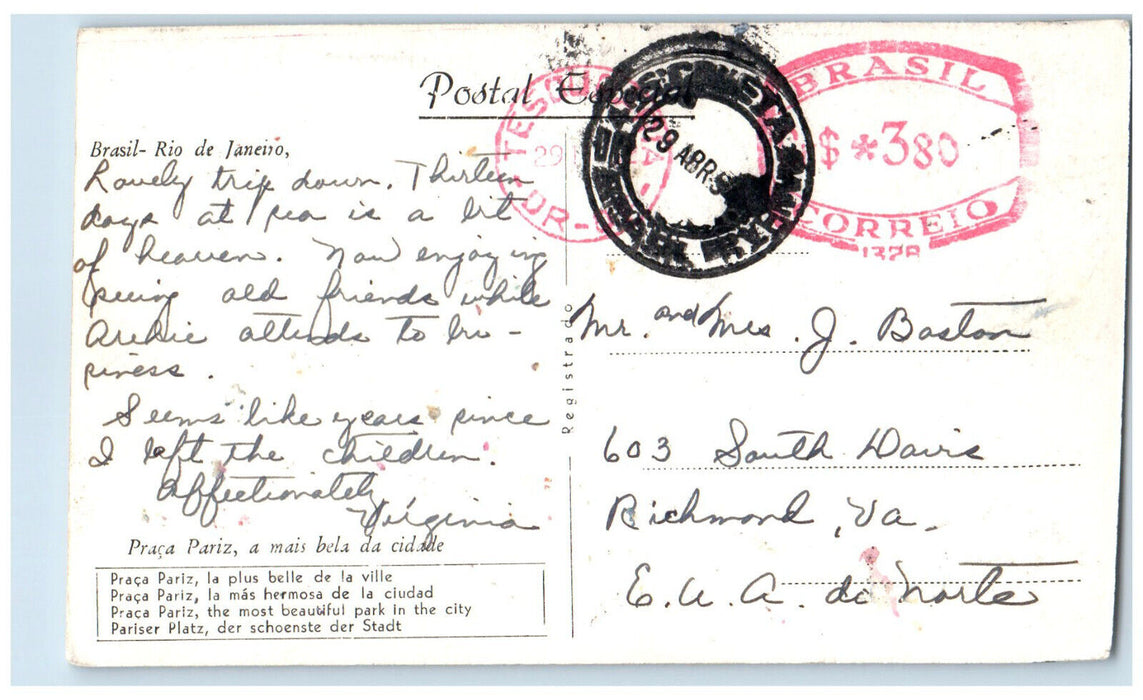 Postal Especial
BRASIL
$ *380
CORREIO
29 ABR 5
29
Brasil- Rio de Janeiro,
Lovely trip down. Thirteen
days at sea is a bit
of heaven. Now enjoying
seeing old friends while
Archie attends to bu-
siness.
Seems like years since
I left the children.
Affectionately
Virginia
Praça Pariz, a mais bela da cidade
Praça Pariz, la plus belle de la ville
Praça Pariz, la más hermosa de la ciudad
Praça Pariz, the most beautiful park in the city
Pariser Platz, der schoenste der Stadt
Registrado
Mr. and Mrs. J. Boston
603 South Davis
Richmond, Va.
E. U. A. do Norte